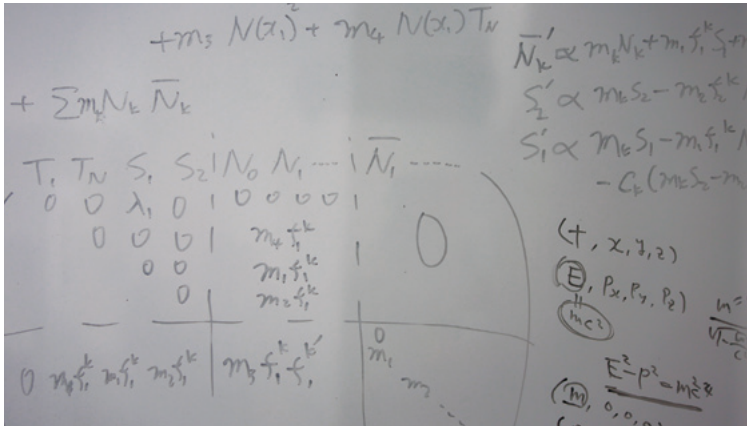 +m₅ N(x₁)² + m₄ N(x₁) T_N
+ Σm_k N_k N̄_k
T₁ T_N S₁ S₂ | N₀ N₁ ---- | N̄₁ -----
0 0 λ₁ 0 | 0 0 0 0 |
0 0 0 | m₄f₁ᵏ | 0
0 0 m₁f₁ᵏ
0 | m₂f₁ᵏ
0 m₄f₁ᵏ m₁f₁ᵏ m₂f₁ᵏ | m₅f₁ᵏf₁ᵏ′ | 0
m₁
m₂
N̄ₖ′ ∝ mₖNₖ+m₁f₁ᵏS₁+
S₂′ ∝ mₖS₂-m₂f₂ᵏ
S₁′ ∝ mₖS₁-m₁f₁ᵏ
-Cₖ(mₖS₂-m
(t, x, y, z)
(E, Pₓ, Pᵧ, P_z)
mc²
E²-p²=m²c²
(m, 0, 0, 0)